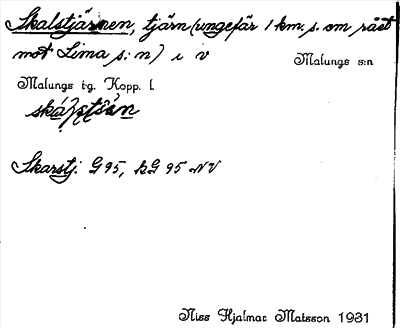 Skalstjärnen, tjärn (ungefär 1 km. s. om rået
mot Lima s:n) i v
Malungs s:n
Malungs tg. Kopp. l
Skarstj. G 95, kG 95 NV
Niss Hjalmar Matsson 1931